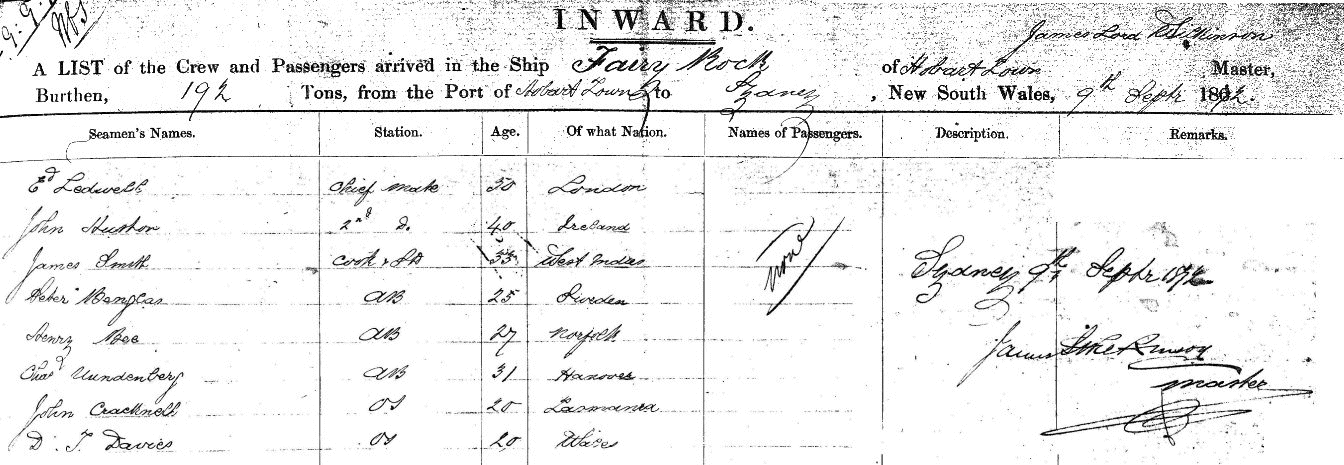 INWARD.
James Lord Wilkinson
A LIST of the Crew and Passengers arrived in the Ship Fairy Rock of Hobart Town Master,
Burthen, 192 Tons, from the Port of Hobart Town to Sydney, New South Wales, 9th Septr 1872.
Seamen's Names. Station. Age. Of what Nation. Names of Passengers. Description. Remarks.
Ed Ledwell Chief Mate 50 London
John Huston 2nd D. 40 Ireland
James Smith Cook & Std 33 West Indies none Sydney 9th Septr 1872
Peter AB 25 Sweden
Henry Bee AB 27 Norfolk
James Master
Chas Vundenberg AB 31 Hanover
John Cracknell OS 20 Tasmania
D. T. Davies OS 20 Wales